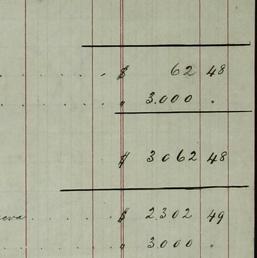 $ 62 48
" 3.000 "
$ 3062 48
$ 2.302 49
" 3.000 "